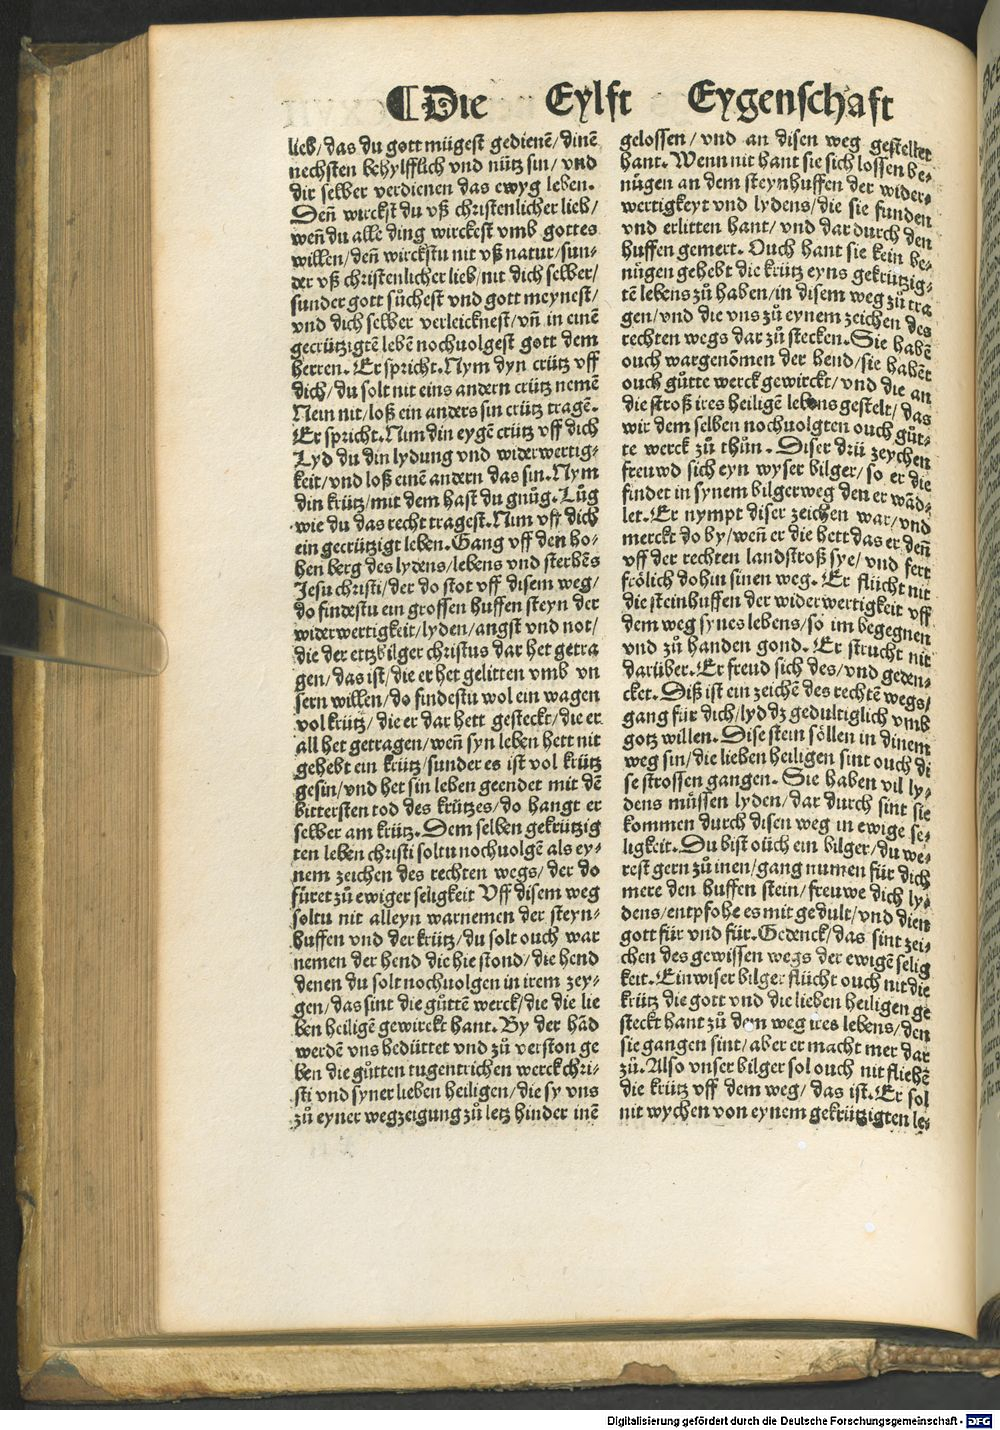 ¶ Die Eylft Eygenschaft
lieb/das du gott mügest gedienē/dinē
nechsten behylfflich vnd nütz sin/vnd
dir selber verdienen das ewyg leben.
Deñ wirckst du vß christenlicher lieb/
weñ du alle ding wirckest vmb gottes
willen/deñ wirckstu nit vß natur/sun-
der vß christenlicher lieb/nit dich selber/
sunder gott suͦchest vnd gott meynest/
vnd dich selber verleicknest/vñ in einē
gecrützigtē lebē nochuolgest gott dem
herren. Er spricht. Nym dyn crütz vff
dich/du solt nit eins andern crütz nemē
Nein nit/loß ein anders sin crütz tragē.
Er spricht. Nim din eygē crütz vff dich
Lyd du din lydung vnd widerwertig-
keit/vnd loß einē andern das sin. Nym
din krütz/mit dem hast du gnuͦg. Luͦg
wie du das recht tragest. Nim vff dich
ein gecrützigt leben. Gang vff den ho-
hen berg des lydens/lebens vnd sterbēs
Jesu christi/der do stot vff disem weg/
do findestu ein grossen huffen steyn der
widerwertigkeit/lyden/angst vnd not/
die der ertzbilger christus dar het getra
gen/das ist/die er het gelitten vmb vn
sern willen/do findestu wol ein wagen
vol krütz/die er dar hett gesteckt/die er
all het getragen/weñ syn leben hett nit
gehebt ein krütz/sunder es ist vol krütz
gesin/vnd het sin leben geendet mit dē
bittersten tod des krützes/do hangt er
selber am krütz. Dem selben gekrützig
ten leben christi soltu nochuolgē als ey-
nem zeichen des rechten wegs/der do
füret zuͦ ewiger seligkeit Vff disem weg
soltu nit alleyn warnemen der steyn-
huffen vnd der krütz/du solt ouch war
nemen der hend die hie stond/die hend
denen du solt nochuolgen in irem zey-
gen/das sint die guͦttē werck/die die lie
ben heiligē gewirckt hant. By der hād
werdē vns bedüttet vnd zuͦ verston ge
ben die guͦtten tugentrichen werck chri-
sti vnd syner lieben heiligen/die sy vns
zuͦ eyner wegzeigung zuͦ letz hinder inē
gelossen/vnd an disen weg gestellet
hant. Wenn nit hant sie sich lossen be-
nuͤgen an dem steynhuffen der wider-
wertigkeyt vnd lydens/die sie funden
vnd erlitten hant/vnd dar durch den
huffen gemert. Ouch hant sie kein be-
nuͤgen gehebt die krütz eyns gekrützig-
tē lebens zuͦ haben/in disem weg zuͦ tra
gen/vnd die vns zuͦ eynem zeichen des
rechten wegs dar zuͦ stecken. Sie habē
ouch wargenōmen der hend/sie habēt
ouch guͦtte werck gewirckt/vnd die an
die stroß ires heiligē lebens gestelt/das
wir dem selben nochuolgten ouch guͦt-
te werck zuͦ thuͦn. Diser drü zeychen
freuwd sich eyn wyser bilger/so er die
findet in synem bilgerweg den er wād-
let. Er nympt diser zeichen war/vnd
merckt do by/weñ er die hett das er deñ
vff der rechten landstroß sye/vnd fert
frölich dohin sinen weg. Er flücht nit
die steinhuffen der widerwertigkeit vff
dem weg synes lebens/so im begegnen
vnd zuͦ handen gond. Er strucht nit
darüber. Er freud sich des/vnd geden-
cket. Diß ist ein zeichē des rechtē wegs/
gang für dich/lyd dz gedultiglich vmb
gotz willen. Dise stein söllen in dinem
weg sin/die lieben heiligen sint ouch di
se strossen gangen. Sie haben vil ly-
dens muͤssen lyden/dar durch sint sie
kommen durch disen weg in ewige se-
ligkeit. Du bist ouch ein bilger/du we-
rest gern zuͦ inen/gang numen für dich
mere den huffen stein/freuwe dich ly-
dens/entpfohe es mit gedult/vnd dien
gott für vnd für. Gedenck/das sint zei-
chen des gewissen wegs der ewigē selig
keit. Ein wiser bilger flücht ouch nit die
krütz die gott vnd die lieben heiligen ge
steckt hant zuͦ dem weg ires lebens/den
sie gangen sint/aber er macht mer dar
zuͦ. Also vnser bilger sol ouch nit fliehē
die krütz vff dem weg/das ist. Er sol
nit wychen von eynem gekrützigten le-
Digitalisierung gefördert durch die Deutsche Forschungsgemeinschaft - DFG